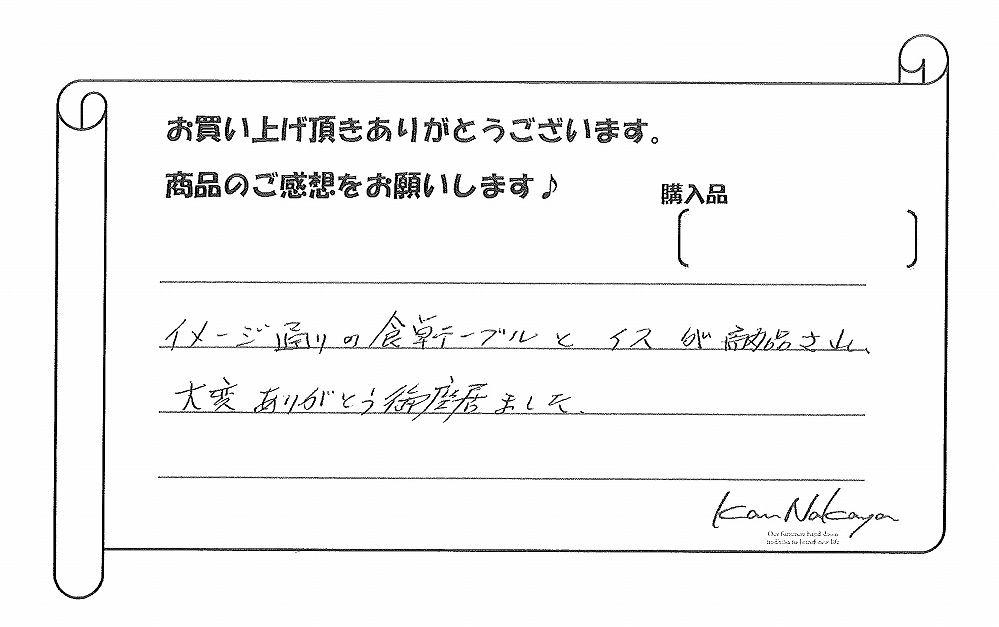 お買い上げ頂きありがとうございます。
商品のご感想をお願いします♪
購入品
イメージ通りの食卓テーブルと イスが納品され、
大変ありがとう御座居ました。
Kan Nakaya